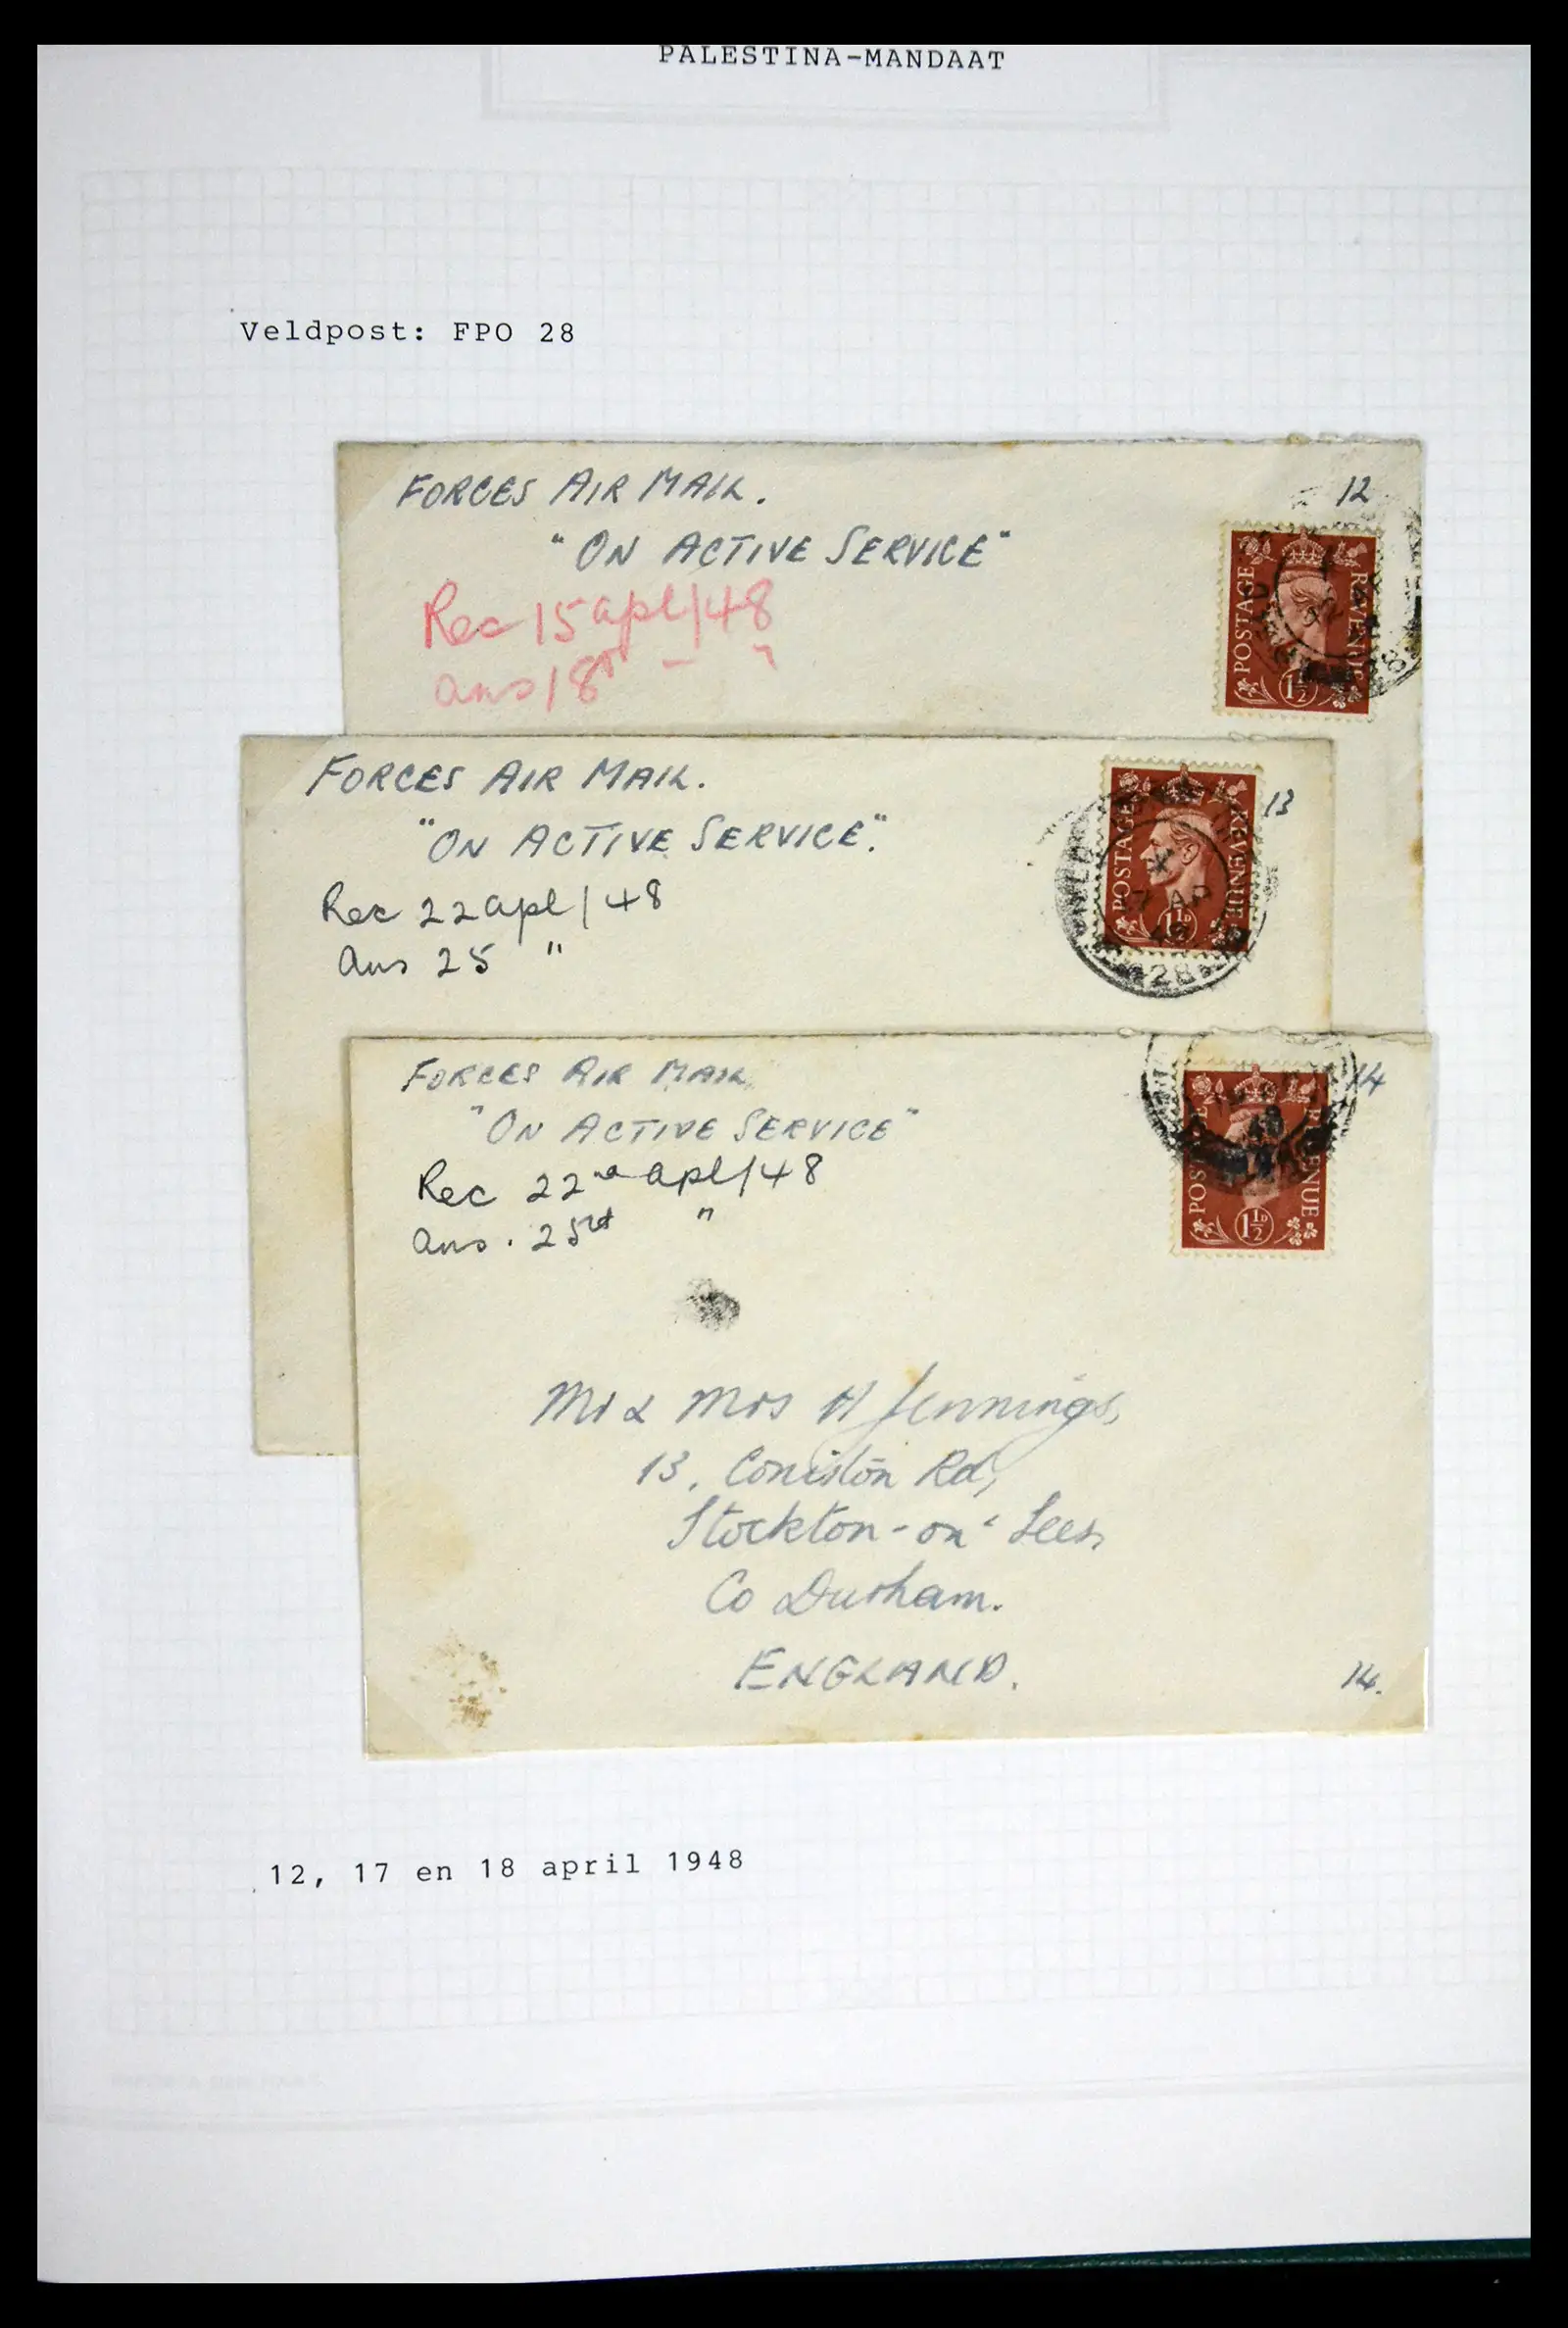 PALESTINA-MANDAAT
Veldpost: FPO 28
FORCES AIR MAIL.
12
"ON ACTIVE SERVICE"
Rec 15 apl/48
ans 18th - "
POSTAGE
REVENUE
1½D
8
FORCES AIR MAIL.
13
"ON ACTIVE SERVICE".
Rec 22 apl/48
Ans 25 "
POSTAGE
REVENUE
1½D
AP
28
FORCES AIR MAIL
14
"ON ACTIVE SERVICE"
Rec 22nd apl/48
Ans. 25th "
REVENUE
1½D
Mr & Mrs H Jennings,
13, Coniston Rd,
Stockton-on-Tees,
Co Durham.
ENGLAND.
14.
12, 17 en 18 april 1948